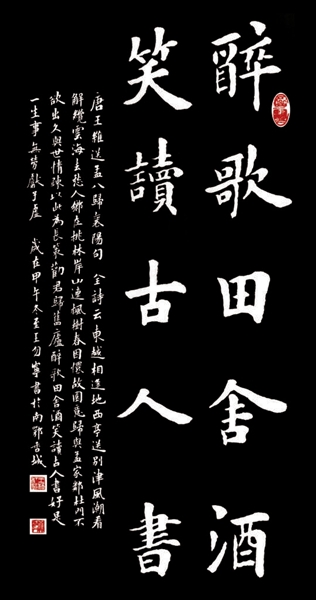 醉歌田舍酒
笑讀古人書
唐王維送孟八歸襄陽句 全詩云東越相逢地西亭送別津風潮看
解纜雲海去愁人鄉在桃林岸山連楓樹春因懷故園意歸與孟家鄰杜門不
欲出久與世情疎以此為長策勸君歸舊廬醉歌田舍酒笑讀古人書好是
一生事無勞獻子虛 歲在甲午冬至王勿寧書於南鄂古城